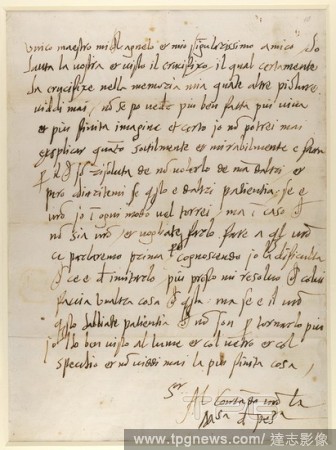 Unico maestro Michelagnelo et mio singularissimo amico Ho
hauta la vostra et visto il crucifixo il qual certamente
ha crucifixe nella memoria mia quante altre picture
viddi mai ne se po veder piu ben fatta piu viva
et piu finita imagine et certo io non potrei mai
explicar quanto sutilmente et mirabilmente e fatta
risoluta de non volerlo de man daltri et
pero chiaritemi se questo e daltri patientia se e
vostro io in ogni modo vel torrei ma in caso che
non sia vostro et vogliate farlo fare a quel vostro
ce parlaremo prima perche cognoscendo io la difficulta
che ce e di imitarlo piu presto mi resolvo che colui
faccia unaltra cosa che questa ma se e il vostro
questo habbiate patientia che non son per tornarlo piu
io lho ben visto al lume et col vetro et col
specchio et non viddi mai la piu finita cosa
www.tpgnews.com/ 達志影像